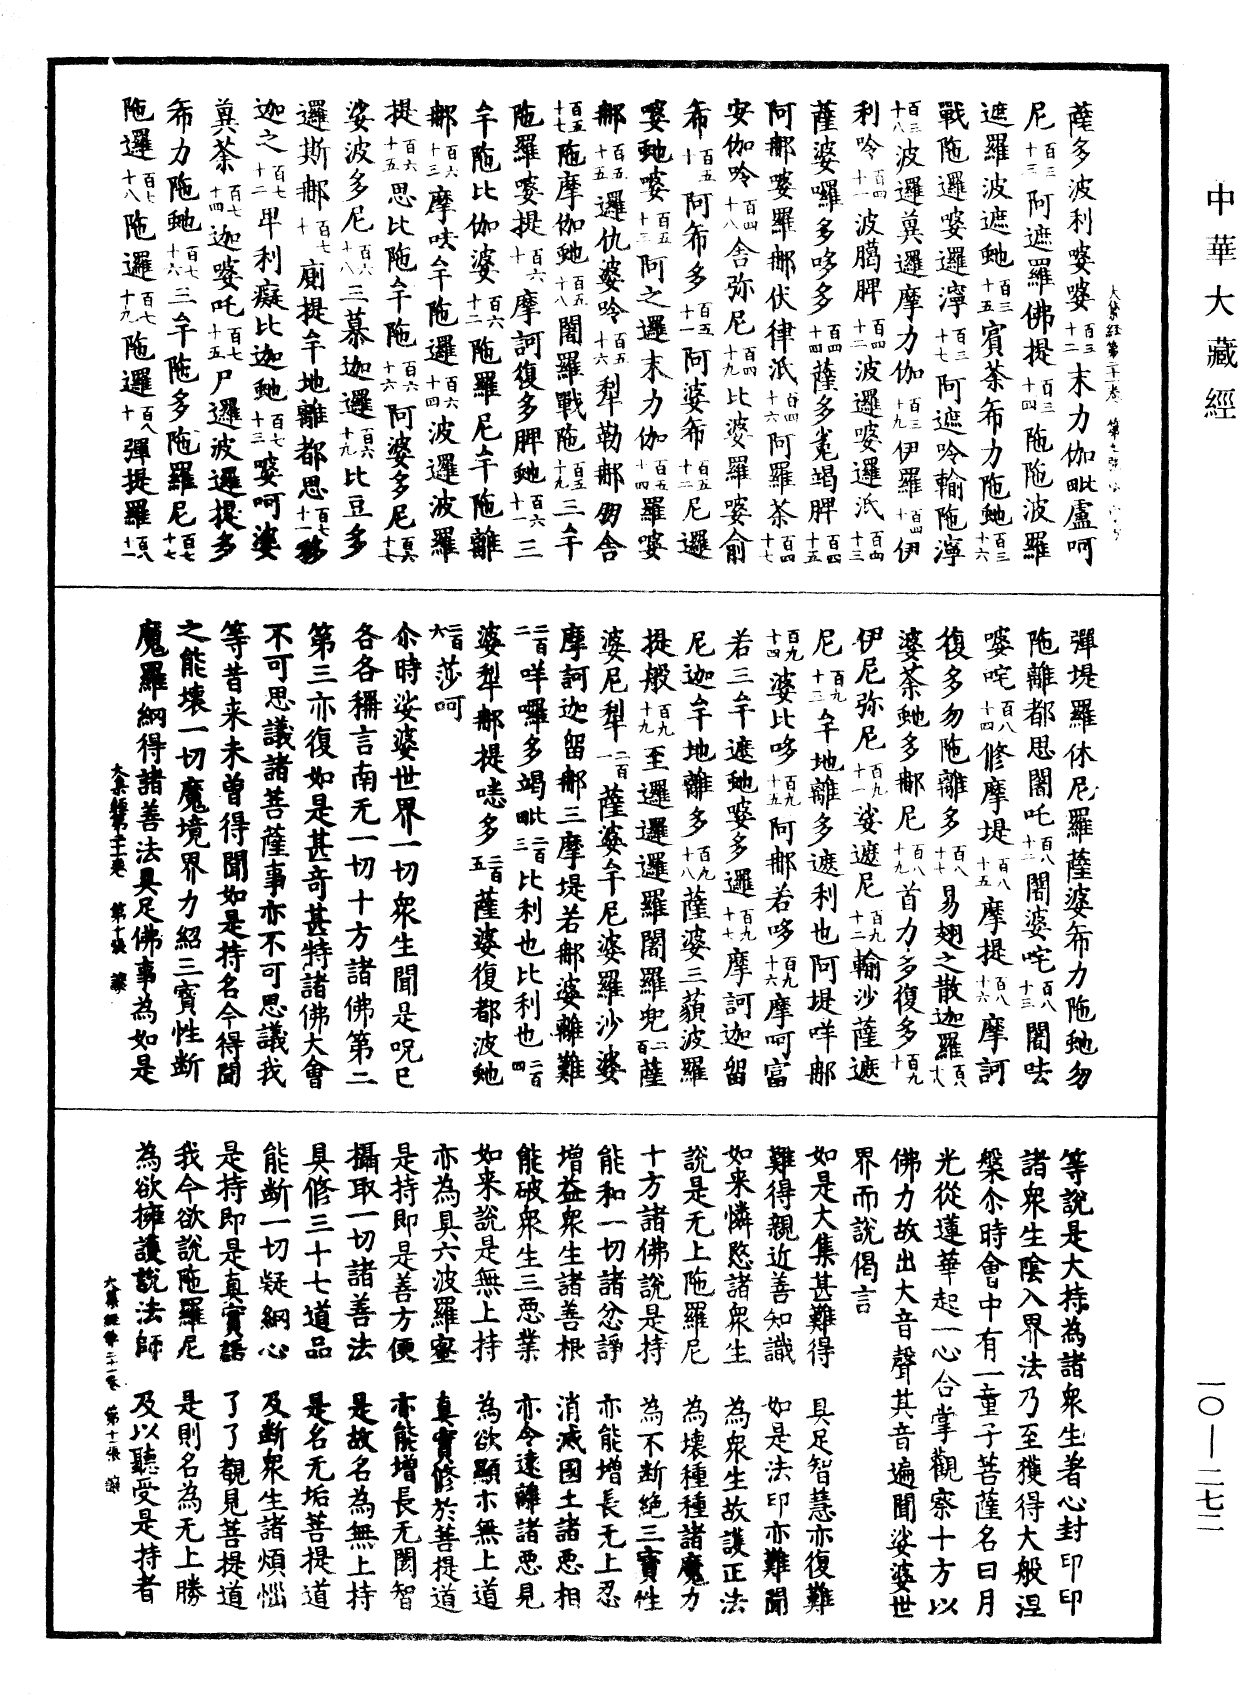 中華大藏經
薩多波利嘙婆百三十二末力伽毗盧呵
尼百三十三阿遮羅佛提百三十四陁陁波羅
遮羅波遮虵百三十五賓荼布力陁虵百三十六
戰陁邏嘙邏濘百三十七阿遮唥輸陁濘
百三十八波邏莫邏摩力伽百三十九伊羅百四十伊
利唥百四十一波臈脾百四十二波邏嘙邏汦百四十三
薩婆囉多哆多百四十四薩多㝹竭脾百四十五
阿䣍嘙羅䣍伏律汦百四十六阿羅荼百四十七
安伽唥百四十八舍弥尼百四十九比婆羅嘙俞
布百五十阿布多百五十一阿婆布百五十二尼邏
嘙虵嘙百五十三阿之邏末力伽百五十四羅嘙
䣍百五十五邏仇婆唥百五十六犁勒䣍匆舍
百五十七陁摩伽虵百五十八闇羅戰陁百五十九三䍐
陁羅嘙提百六十摩訶復多脾虵百六十一三
䍐陁比伽婆百六十二陁羅尼䍐陁離
䣍百六十三摩呿䍐陁邏百六十四波邏波羅
提百六十五思比陁䍐陁百六十六阿婆多尼百六十七
娑波多尼百六十八三慕迦邏百六十九比豆多
邏斯䣍百七十廁提䍐地離都思百七十一移
迦之百七十二卑利癡比迦虵百七十三嘙呵婆
莫荼百七十四迦嘙吒百七十五尸邏波邏提多
布力陁虵百七十六三䍐陁多陁羅尼百七十七
陁邏百七十八陁邏百七十九陁邏百八十彈提羅百八十一
彈堤羅休尼羅薩婆布力陁虵匆
陁離都思闍吒百八十二闍婆咤百八十三闍呿
嘙咤百八十四修摩堤百八十五摩提百八十六摩訶
復多勿陁離多百八十七易翅之散迦羅百八十八
婆荼虵多䣍尼百八十九首力多復多百九十
伊尼弥尼百九十一娑遮尼百九十二輸沙薩遮
尼百九十三䍐地離多遮利也阿堤咩䣍
百九十四婆比哆百九十五阿䣍若哆百九十六摩呵富
若三䍐遮虵嘙多邏百九十七摩訶迦留
尼迦䍐地離多百九十八薩婆三藐波羅
提般百九十九至邏邏邏羅闍羅兜二百薩
婆尼犁二百一薩婆䍐尼婆羅沙婆
摩訶迦留䣍三摩堤若䣍婆離難
二百二咩囉多竭毗二百三比利也比利也二百四
婆犁䣍提㗭多二百五薩婆復都波虵
二百六莎呵
尒時娑婆世界一切衆生聞是呪已
各各稱言南无一切十方諸佛第二
第三亦復如是甚竒甚特諸佛大會
不可思議諸菩薩事亦不可思議我
等昔来未曾得聞如是持名今得聞
之能壞一切魔境界力紹三寶性断
魔羅網得諸善法具足佛事為如是
大集經第二十一卷 第十張
等說是大持為諸衆生著心封印印
諸衆生陰入界法乃至獲得大般涅
槃尒時會中有一童子菩薩名曰月
光從蓮華起一心合掌觀察十方以
佛力故出大音聲其音遍聞娑婆世
界而說偈言
如是大集甚難得 具足智慧亦復難
難得親近善知識 如是法印亦難聞
如来憐愍諸衆生 為衆生故護正法
說是无上陁羅尼 為壞種種諸魔力
十方諸佛說是持 為不断絕三寶性
能和一切諸忿諍 亦能增長无上忍
增益衆生諸善根 消滅國土諸惡相
能破衆生三惡業 亦令遠離諸惡見
如来說是無上持 為欲顯示無上道
亦為具六波羅蜜 真實修於菩提道
是持即是善方便 亦能增長无閡智
攝取一切諸善法 是故名為無上持
具修三十七道品 是名无垢菩提道
能断一切疑網心 及断衆生諸煩惱
是持即是真實語 了了覩見菩提道
我今欲說陁羅尼 是則名為无上勝
為欲擁護說法師 及以聽受是持者
大集經第二十一卷 第十一張
一〇—二七二